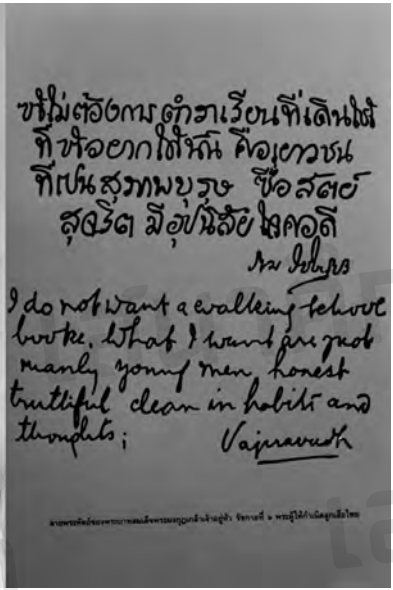 ข้าไม่ต้องการตำราเรียนที่เดินได้
ที่ข้าอยากได้นั้น คือเยาวชน
ที่เป็นสุภาพบุรุษ ซื่อสัตย์
สุจริต มีอุปนิสัยใจคอดี
I do not want a walking school
books. What I want are just
manly young men, honest
truthful clean in habits and
thoughts;
Vajiravudh
ลายพระหัตถ์ของพระบาทสมเด็จพระมงกุฎเกล้าเจ้าอยู่หัว รัชกาลที่ ๖ พระผู้ให้กำเนิดลูกเสือไทย